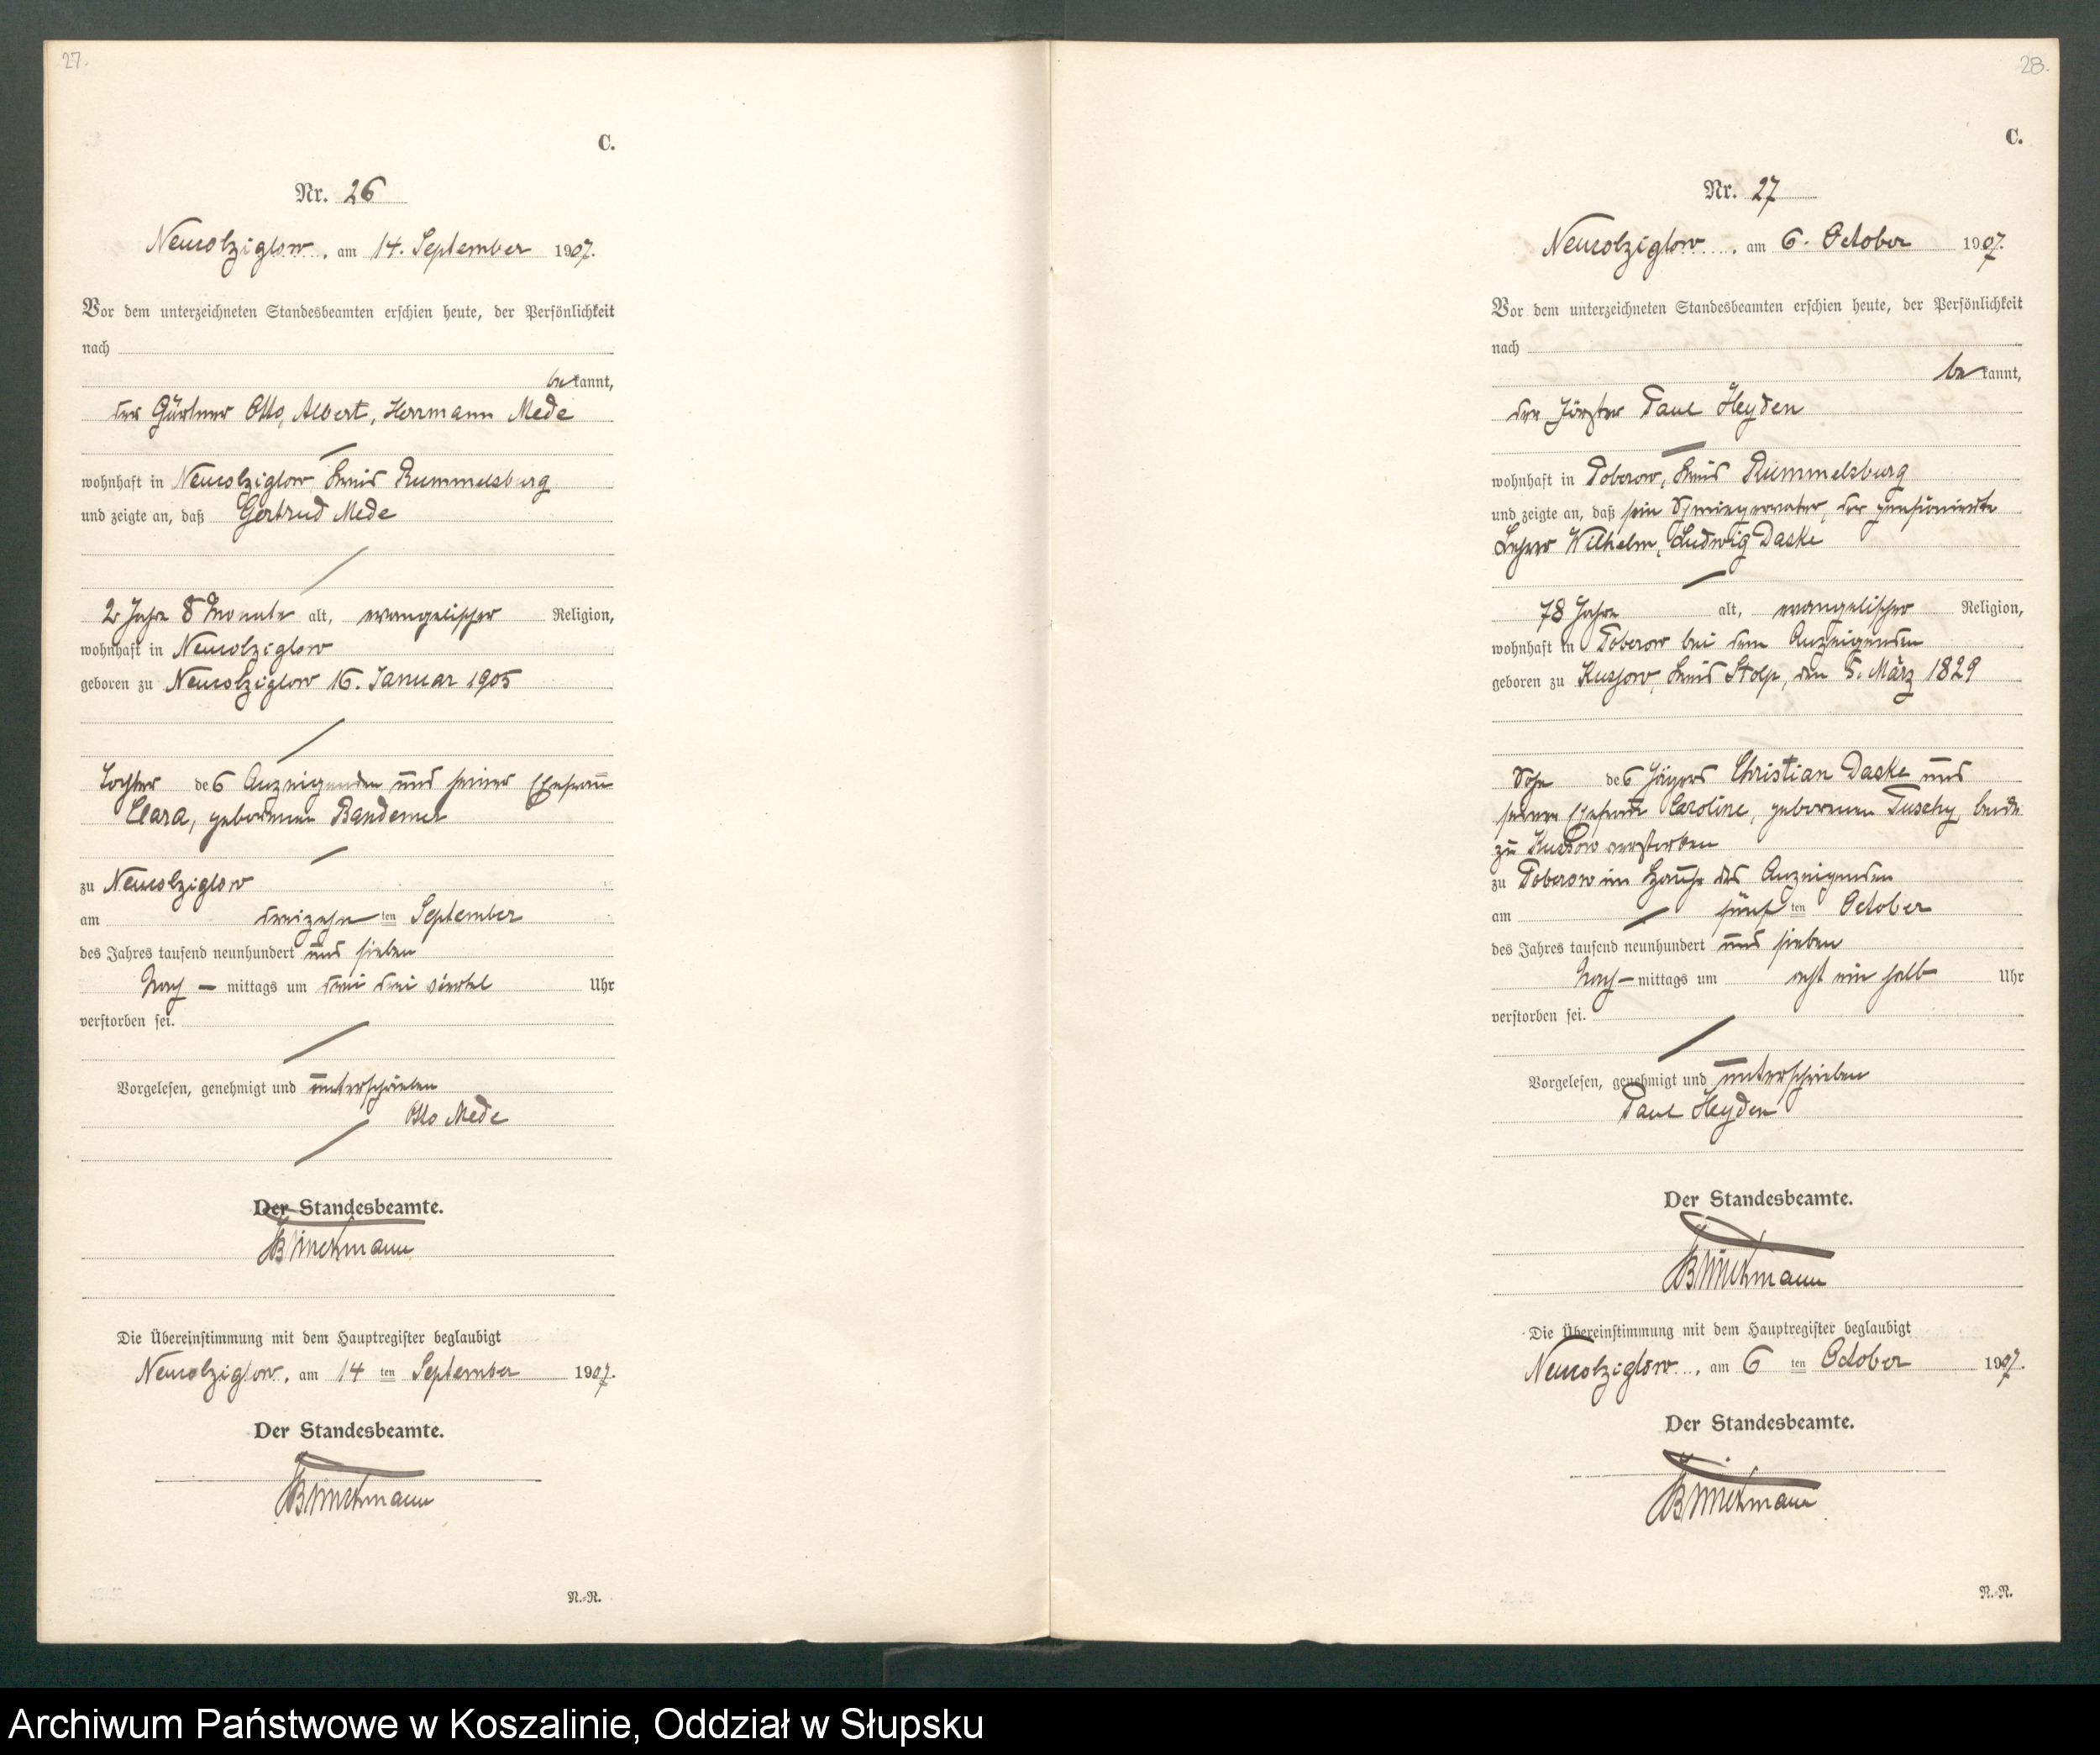 27.
C.
Nr. 26
Neukolziglow, am 14. September 1907.
Vor dem unterzeichneten Standesbeamten erschien heute, der Persönlichkeit
nach
bekannt,
der Gärtner Otto, Albert, Herrmann Mede
wohnhaft in Neukolziglow, Kreis Rummelsburg
und zeigte an, daß Gertrud Mede
2 Jahre 8 Monate alt, evangelischer Religion,
wohnhaft in Neukolziglow
geboren zu Neukolziglow 16. Januar 1905
Tochter des Anzeigenden und seiner Ehefrau
Clara, geborenen Bandemer
zu Neukolziglow
am dreizehnten September
des Jahres tausend neunhundert und sieben
Nach-mittags um drei drei viertel Uhr
verstorben sei.
Vorgelesen, genehmigt und unterschrieben
Otto Mede
Der Standesbeamte.
Die Übereinstimmung mit dem Hauptregister beglaubigt
Neukolziglow, am 14 ten September 1907.
Der Standesbeamte.
N.-N.
28.
C.
Nr. 27
Neukolziglow, am 6. October 1907.
Vor dem unterzeichneten Standesbeamten erschien heute, der Persönlichkeit
nach
bekannt,
der Förster Paul Heyden
wohnhaft in Poberow, Kreis Rummelsburg
und zeigte an, daß sein Schwiegervater, der pensionierte
Lehrer Wilhelm, Ludwig Daske
78 Jahre alt, evangelischer Religion,
wohnhaft in Poberow bei dem Anzeigenden
geboren zu Kussow, Kreis Stolp, den 5. März 1829
Sohn des Jägers Christian Daske und
seiner Ehefrau Caroline, geborenen Tuschy, beide
zu Kussow verstorben
zu Poberow im Hause des Anzeigenden
am fünften October
des Jahres tausend neunhundert und sieben
Nach-mittags um acht ein halb Uhr
verstorben sei.
Vorgelesen, genehmigt und unterschrieben
Paul Heyden
Der Standesbeamte.
Die Übereinstimmung mit dem Hauptregister beglaubigt
Neukolziglow, am 6 ten October 1907.
Der Standesbeamte.
N.-N.
Archiwum Państwowe w Koszalinie, Oddział w Słupsku